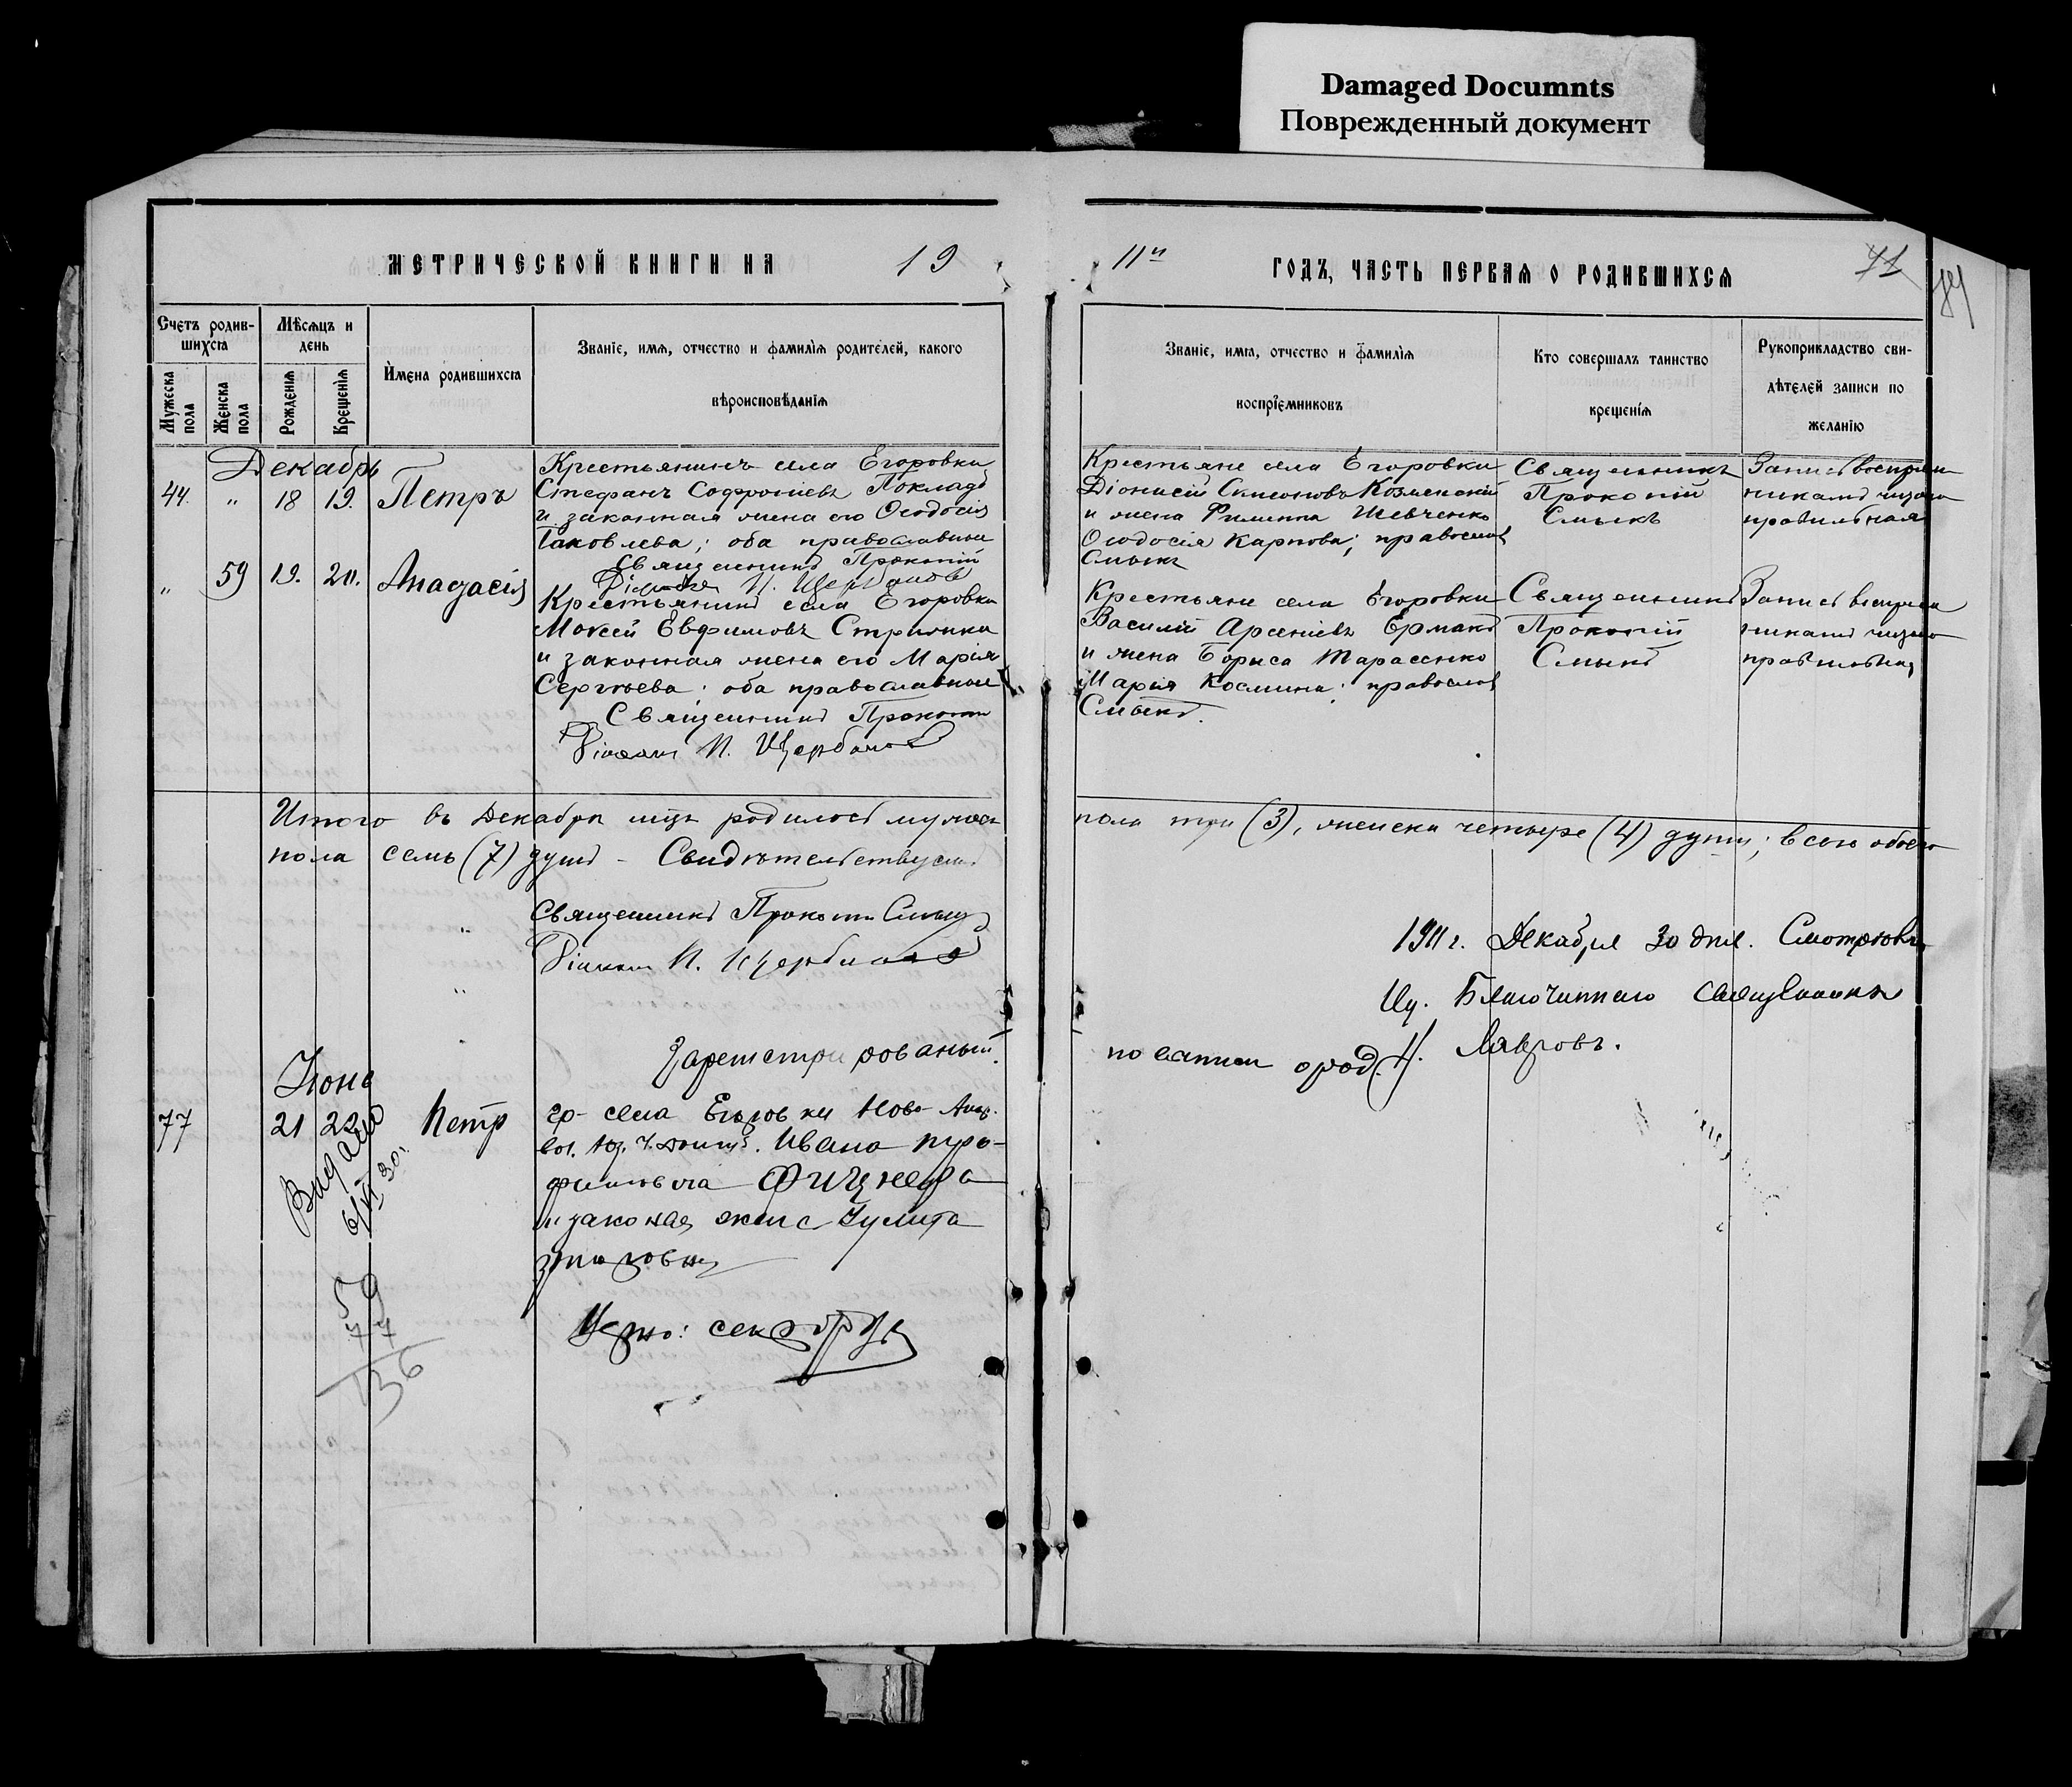 Damaged Documnts
Поврежденный документ
МЕТРИЧЕСКОЙ КНИГИ НА 19
11й ГОДЪ, ЧАСТЬ ПЕРВАЯ О РОДИВШИХСЯ
71
Счетъ родив-
шихся
Мужеска пола
Женска пола
Мѣсяцъ и
день
Рожденія
Крещенія
Имена родившихся
Званіе, имя, отчество и фамилія родителей, какого
вѣроисповѣданія
Званіе, имя, отчество и фамилія
воспріемниковъ
Кто совершалъ таинство
крещенія
Рукоприкладство сви-
дѣтелей записи по
желанію
Декабрь
44. " 18 19. Петръ
Крестьянинъ села Егоровки
Стефанъ Софроніевъ
и законная жена его Ѳеодосія
Іаковлева; оба православные
Священникъ Прокопій
Діаконъ П. Щербановъ
Крестьяне села Егоровки
Діонисій
и жена Филиппа Шевченко
Ѳеодосія Карпова; православ
Смыкъ
Священникъ
Прокопій
Смыкъ
Запись воспріем
никами
правильная
" 59 19. 20.
Крестьянинъ села Егоровки
Моѵсей Евфимовъ
и законная жена его Марія
Сергѣева; оба православные
Священникъ Прокопій
Діаконъ П. Щербановъ
Крестьяне села Егоровки
Василій Арсеніевъ Ермакъ
и жена Бориса Тарасенко
Марія Космина; православ
Смыкъ.
Священникъ
Прокопій
Смыкъ
Запись воспріем
никами
правильная
Итого въ Декабрѣ мцѣ родилось мужеск
пола три (3), женска четыре (4) души; всего обоего
пола семь (7) душъ - Свидѣтельствуемъ
Священникъ Прокопій Смыкъ
Діаконъ П. Щербановъ
1911 г. Декабря 30 дня. Смотрѣлъ
И. Благочиннаго Священникъ
Н. Лавровъ.
Зарегестрированый
по записи о род.
Июне
77 21 22 Петр
гр- села Егоровки Ново-
Ивана
Фицнера
и законая жена Улита
Видано
6/VI 30.
59
77
136